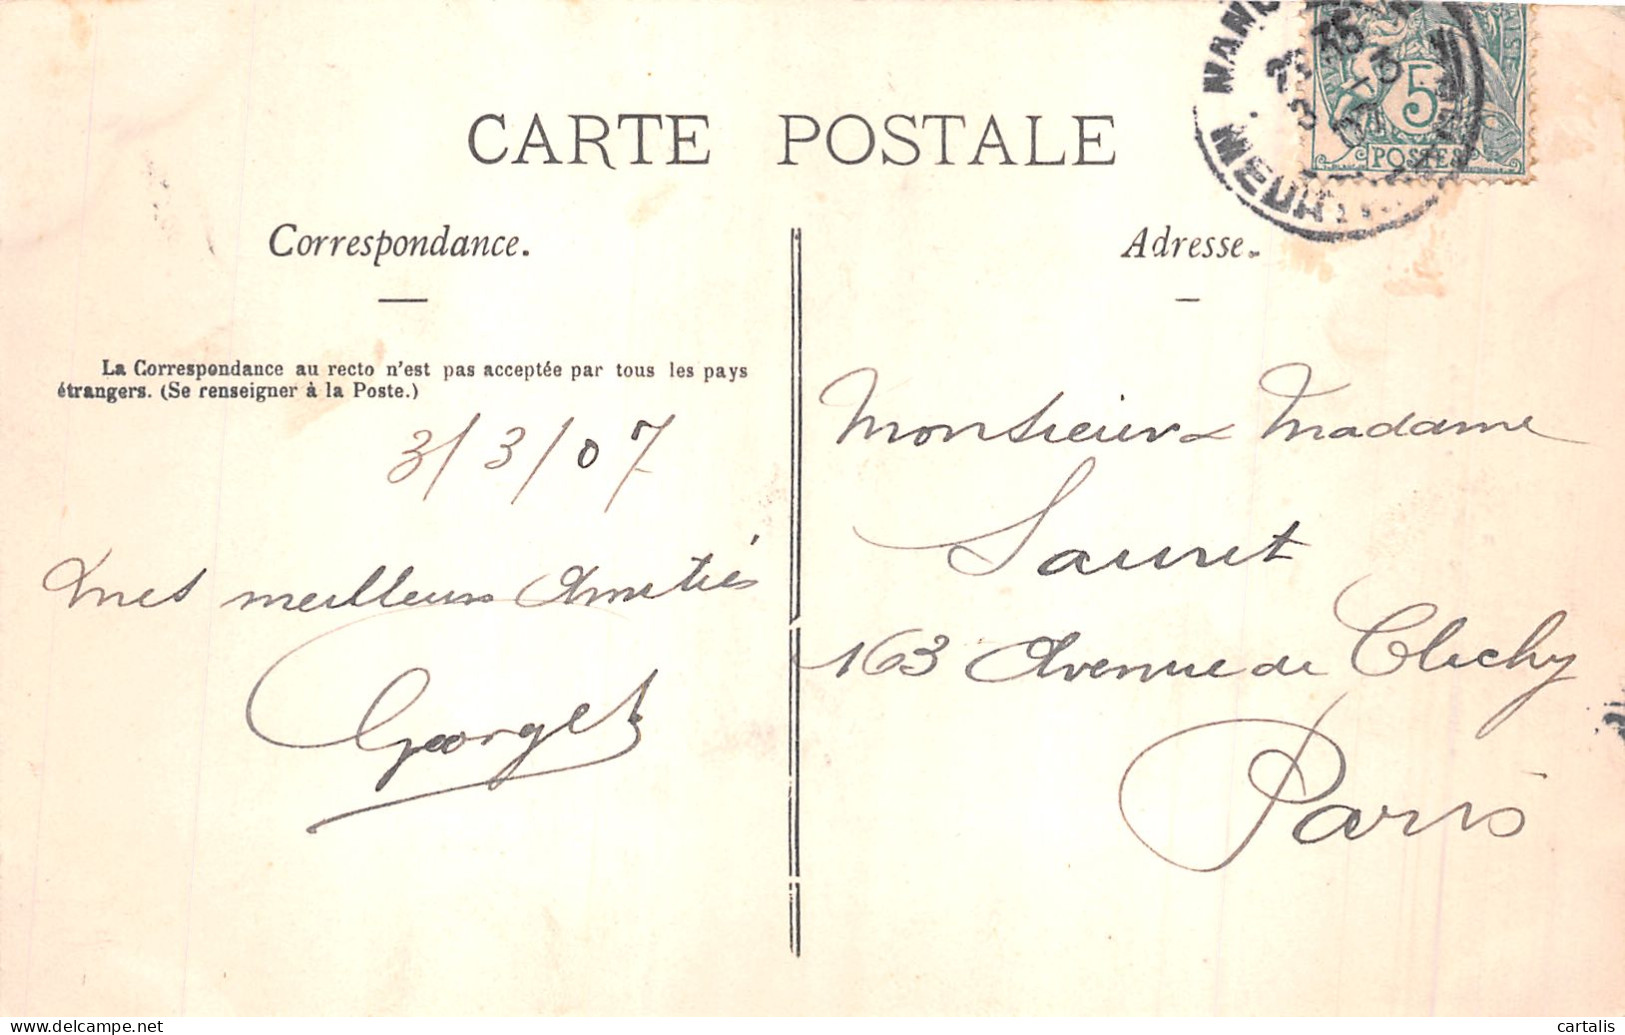 CARTE POSTALE
Correspondance.
Adresse.
La Correspondance au recto n'est pas acceptée par tous les pays
étrangers. (Se renseigner à la Poste.)
3/3/07
mes meilleurs Amitiés
Georges
Monsieur & Madame
Sauret
163 Avenue de Clichy
Paris
5
POSTES
delcampe.net
cartalis